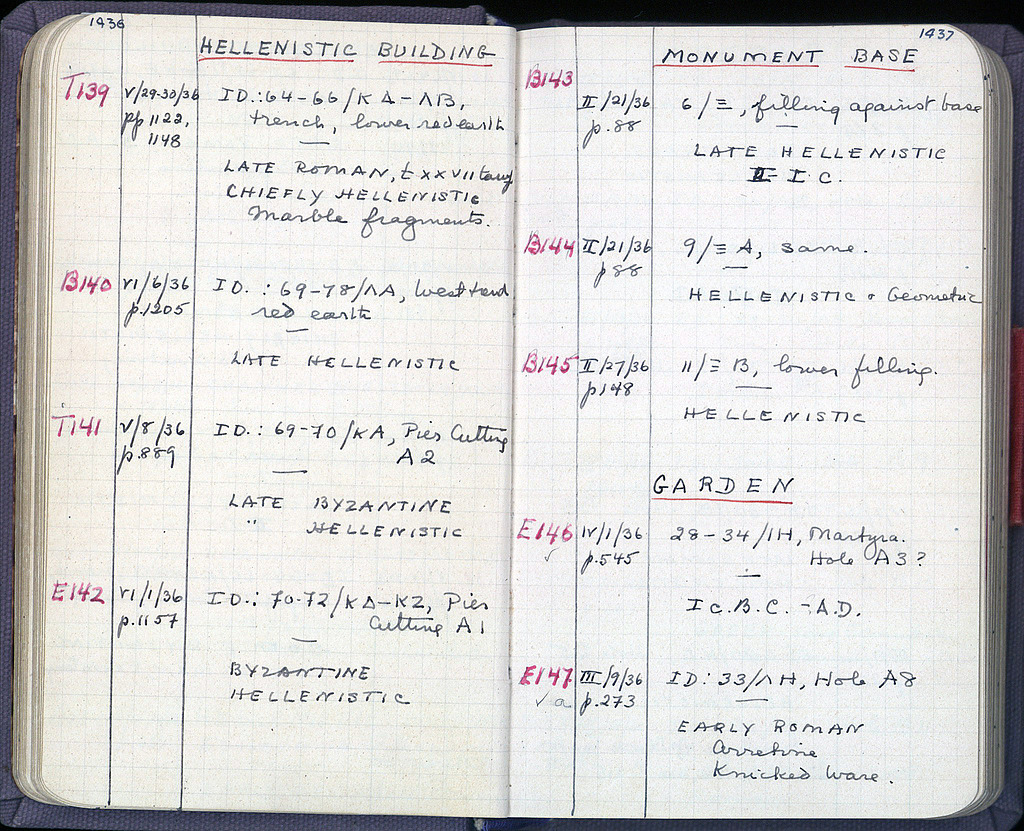 1436
HELLENISTIC BUILDING
T139 V/29-30/36 ID.:64-66/ΚΔ-ΛΒ,
pp 1122, trench, lower red earth
1148
LATE ROMAN,
CHIEFLY HELLENISTIC
Marble fragments.
B140 VI/6/36 ID. : 69-78/ΛΑ, West end
p.1205 red earth
LATE HELLENISTIC
T141 V/8/36 ID.: 69-70/ΚΑ, Pier Cutting
p.889 A2
LATE BYZANTINE
" HELLENISTIC
E142 VI/1/36 ID.: 70-72/ΚΔ-ΚΖ, Pier
p.1157 Cutting A1
BYZANTINE
HELLENISTIC
1437
MONUMENT BASE
B143
II/21/36 6/Ξ, filling against base
p.88
LATE HELLENISTIC
I C.
B144 II/21/36 9/Ξ A, same.
p88
HELLENISTIC + Geometric
B145 II/27/36 11/Ξ B, lower filling.
p148
HELLENISTIC
GARDEN
E146 IV/1/36 28-34/ΙΗ, Martyra.
✓ p.545 Hole A3?
I c. B.C. - A.D.
E147 III/9/36 ID: 33/ΛΗ, Hole A8
✓ a p.273
EARLY ROMAN
Arretine
Knicked Ware.